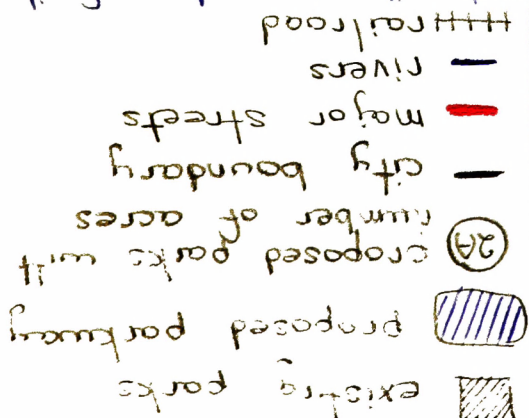 existing parks
proposed parkway
2A proposed parks with
number of acres
city boundary
major streets
rivers
railroad